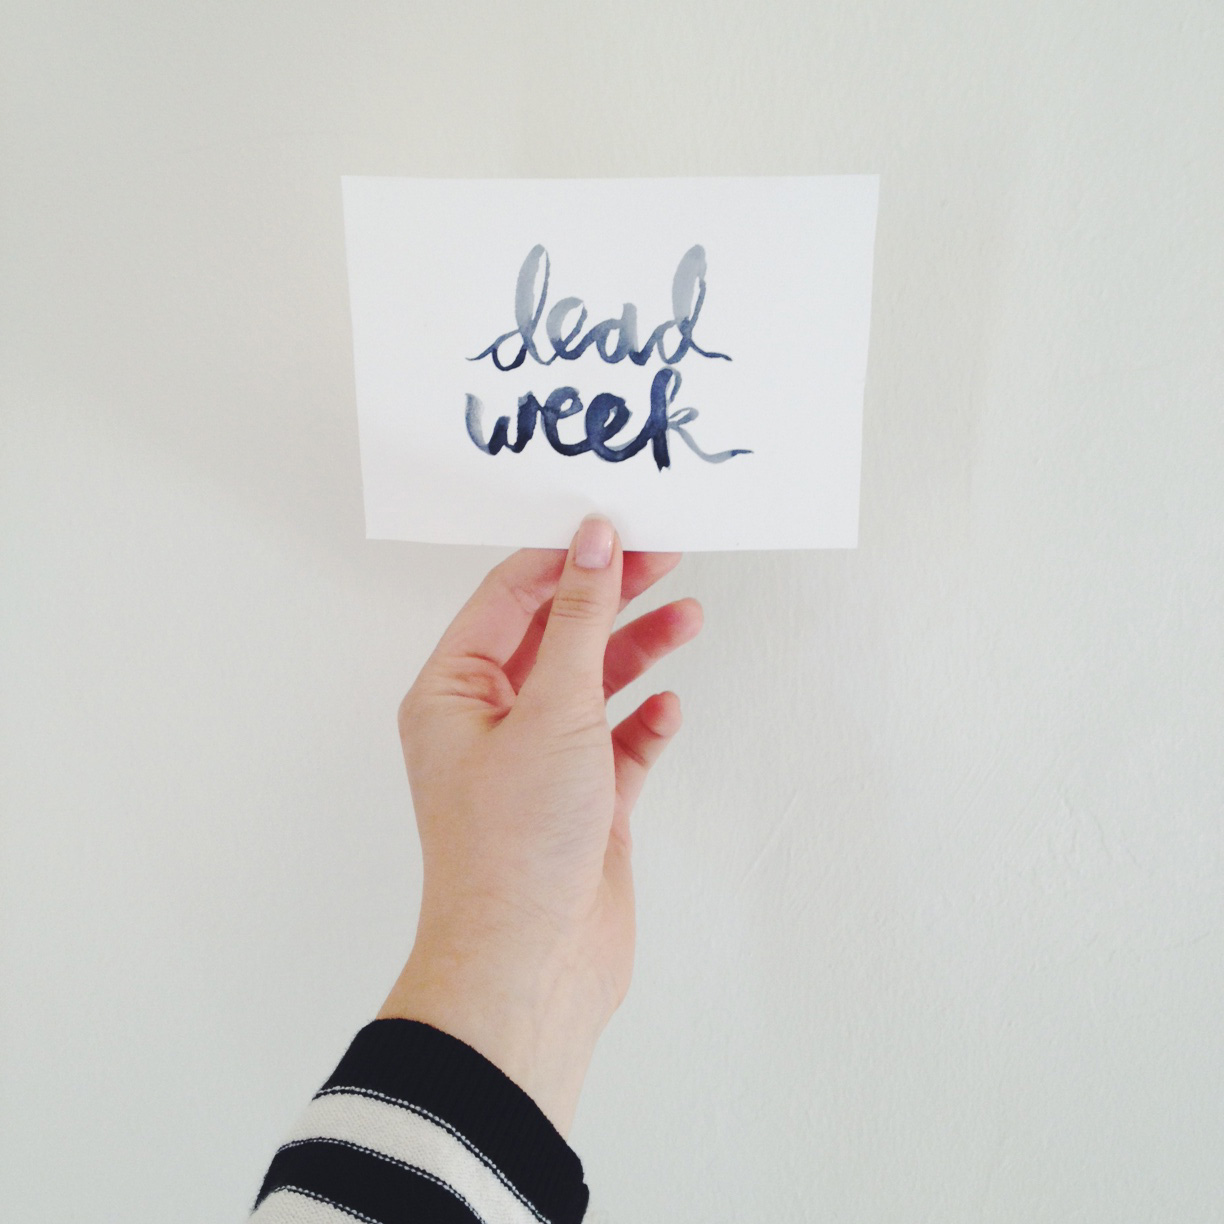 dead
week